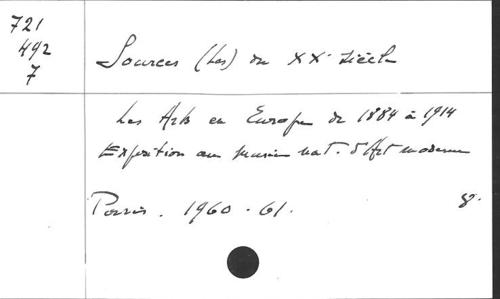 721
492
7
Sources (Les) du XXe siècle
Les Arts en Europe de 1884 à 1914
Exposition au musée nat. d'Art moderne
Paris. 1960-61.
8°